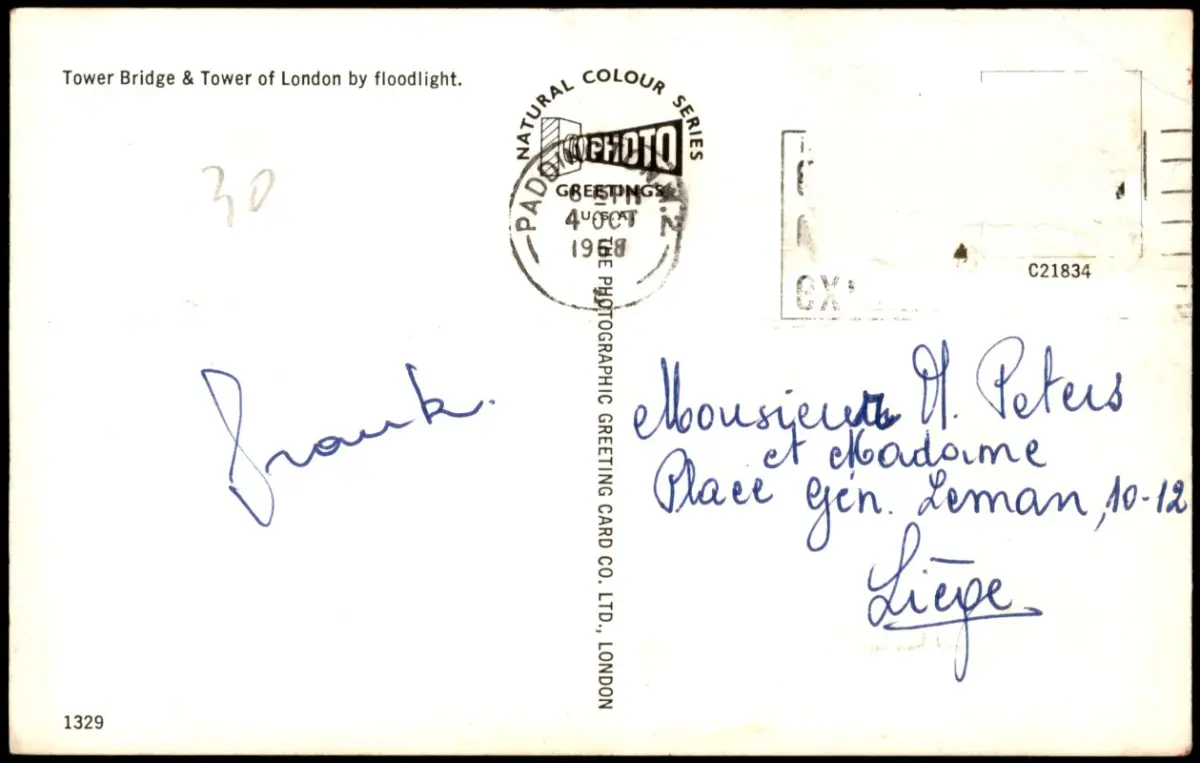 Tower Bridge & Tower of London by floodlight.
NATURAL COLOUR SERIES
PHOTO
GREETINGS
PADDINGTON W.2
4 OCT
1968
30
C21834
THE PHOTOGRAPHIC GREETING CARD CO. LTD., LONDON
Frank.
Monsieur M. Peters
et Madame
Place Gén. Leman, 10-12
Liège
1329